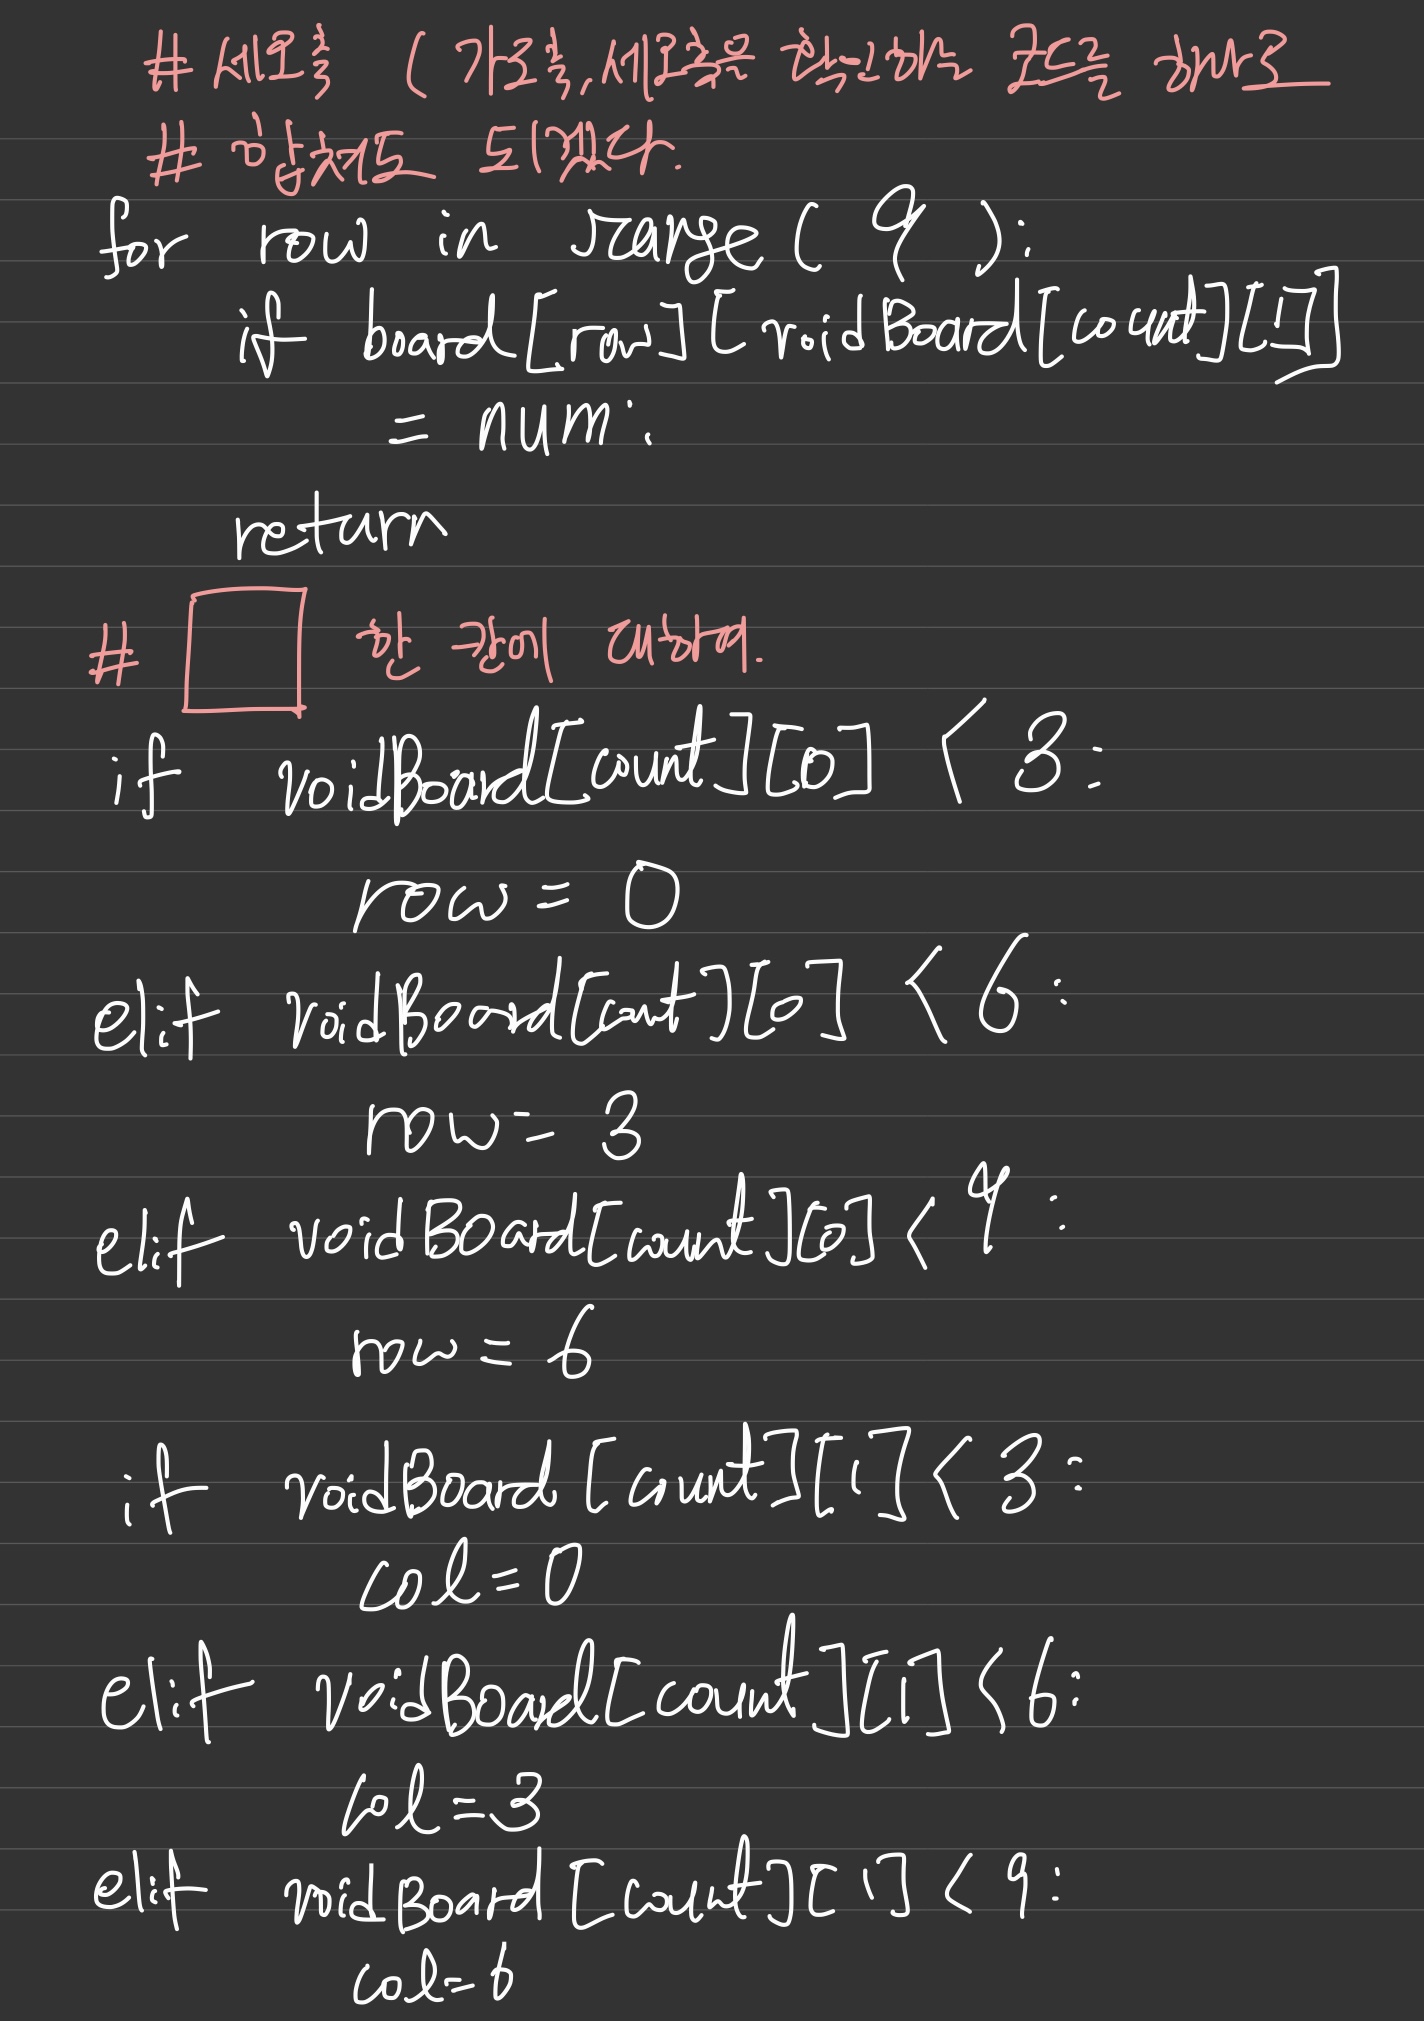 # 세로축 (가로축, 세로축은 확인하는 코드를 하나로
# 합쳐도 되겠다.
for row in range( 9 ):
if board[row][voidBoard[count][1]]
= num:
return
# 한 칸에 대하여.
if voidBoard[count][0] < 3:
row = 0
elif voidBoard[count][0] < 6:
row = 3
elif voidBoard[count][0] < 9:
row = 6
if voidBoard[count][1] < 3:
col = 0
elif voidBoard[count][1] < 6:
col = 3
elif voidBoard[count][1] < 9:
col = 6